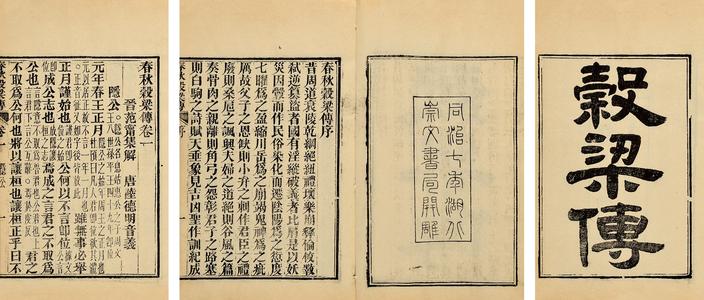 穀梁傳
同治七年湖北
崇文書局開雕
春秋穀梁傳序
昔周道衰陵乾綱絕紐禮壞樂崩彝倫攸斁
弒逆篡盜者國有淫縱破義者比肩是以妖
災因釁而作民俗染化而遷陰陽為之愆度
七曜為之盈縮川岳為之崩竭鬼神為之疵
厲故父子之恩缺則小弁之刺作君臣之禮
廢則桑扈之諷興夫婦之道絕則谷風之篇
奏骨肉之親離則角弓之怨彰君子之路塞
則白駒之詩賦天垂象見吉凶聖作訓紀成
春秋穀梁傳 序 一
春秋穀梁傳卷一
晉范甯集解 唐陸德明音義
隱公
元年春王正月
雖無事必舉
正月謹始也 公何以不言即位
成公志也 焉成之言君之不取為
公也 君之
不取為公何也將以讓桓也讓桓正乎曰不
春秋穀梁傳 卷一 一